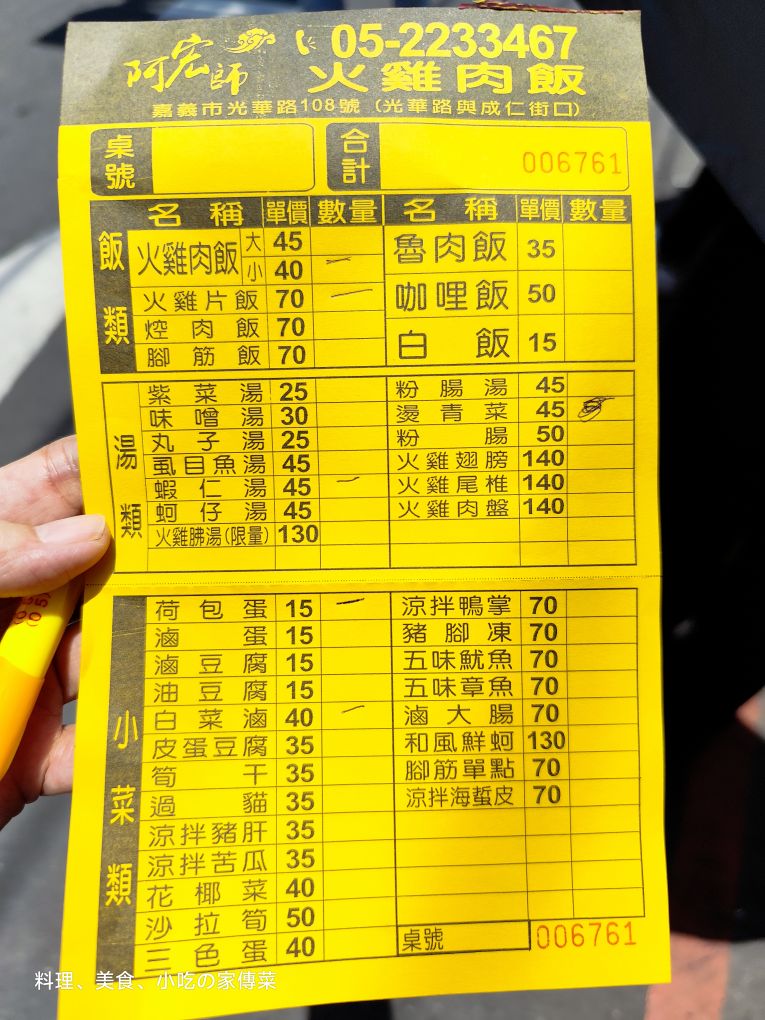 阿宏師 05-2233467
火雞肉飯
嘉義市光華路108號（光華路與成仁街口）
桌號 合計 006761
名稱 單價 數量 名稱 單價 數量
飯類
火雞肉飯 大 45
小 40 一
火雞片飯 70 一
焢肉飯 70
腳筋飯 70
魯肉飯 35
咖哩飯 50
白飯 15
湯類
紫菜湯 25
味噌湯 30
丸子湯 25
虱目魚湯 45
蝦仁湯 45 一
蚵仔湯 45
火雞胇湯(限量) 130
粉腸湯 45
燙青菜 45
粉腸 50
火雞翅膀 140
火雞尾椎 140
火雞肉盤 140
小菜類
荷包蛋 15 一
滷蛋 15
滷豆腐 15
油豆腐 15
白菜滷 40 一
皮蛋豆腐 35
筍干 35
過貓 35
涼拌豬肝 35
涼拌苦瓜 35
花椰菜 40
沙拉筍 50
三色蛋 40
涼拌鴨掌 70
豬腳凍 70
五味魷魚 70
五味章魚 70
滷大腸 70
和風鮮蚵 130
腳筋單點 70
涼拌海蜇皮 70
桌號 006761
料理、美食、小吃の家傳菜